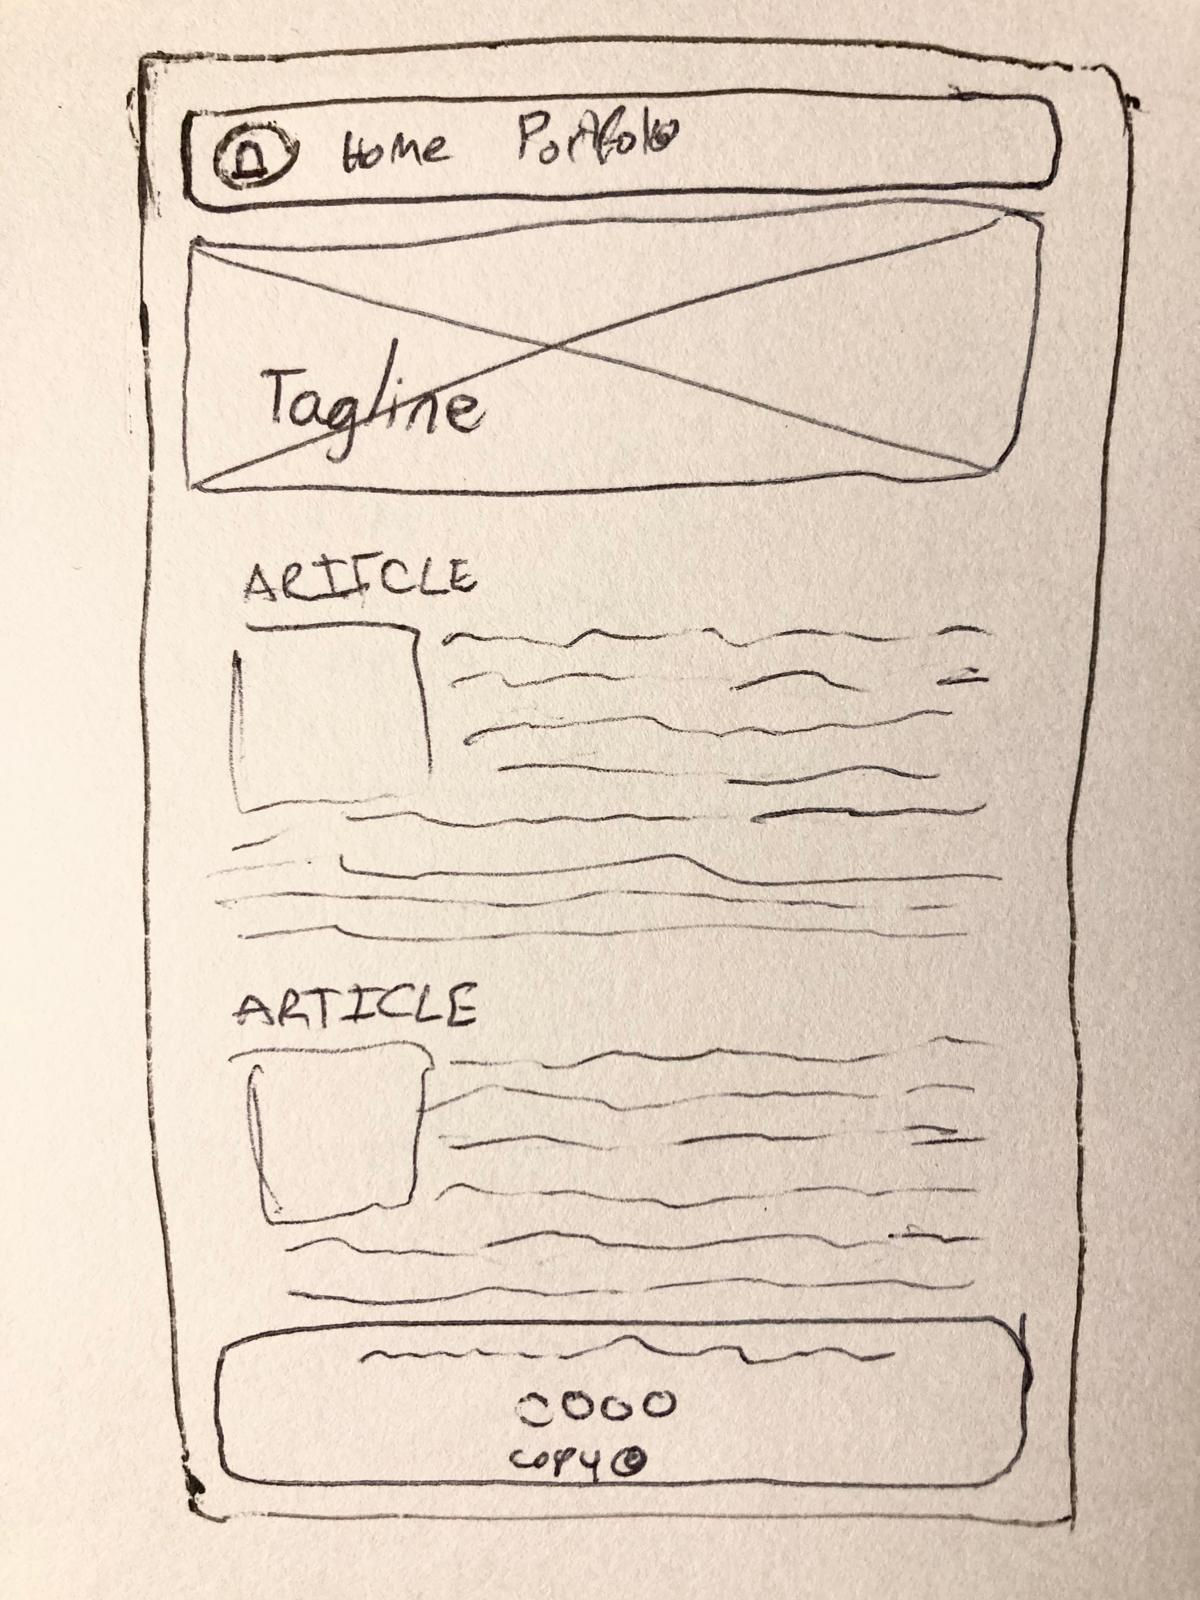 Home Portfolio
Tagline
ARTICLE
ARTICLE
copy ©